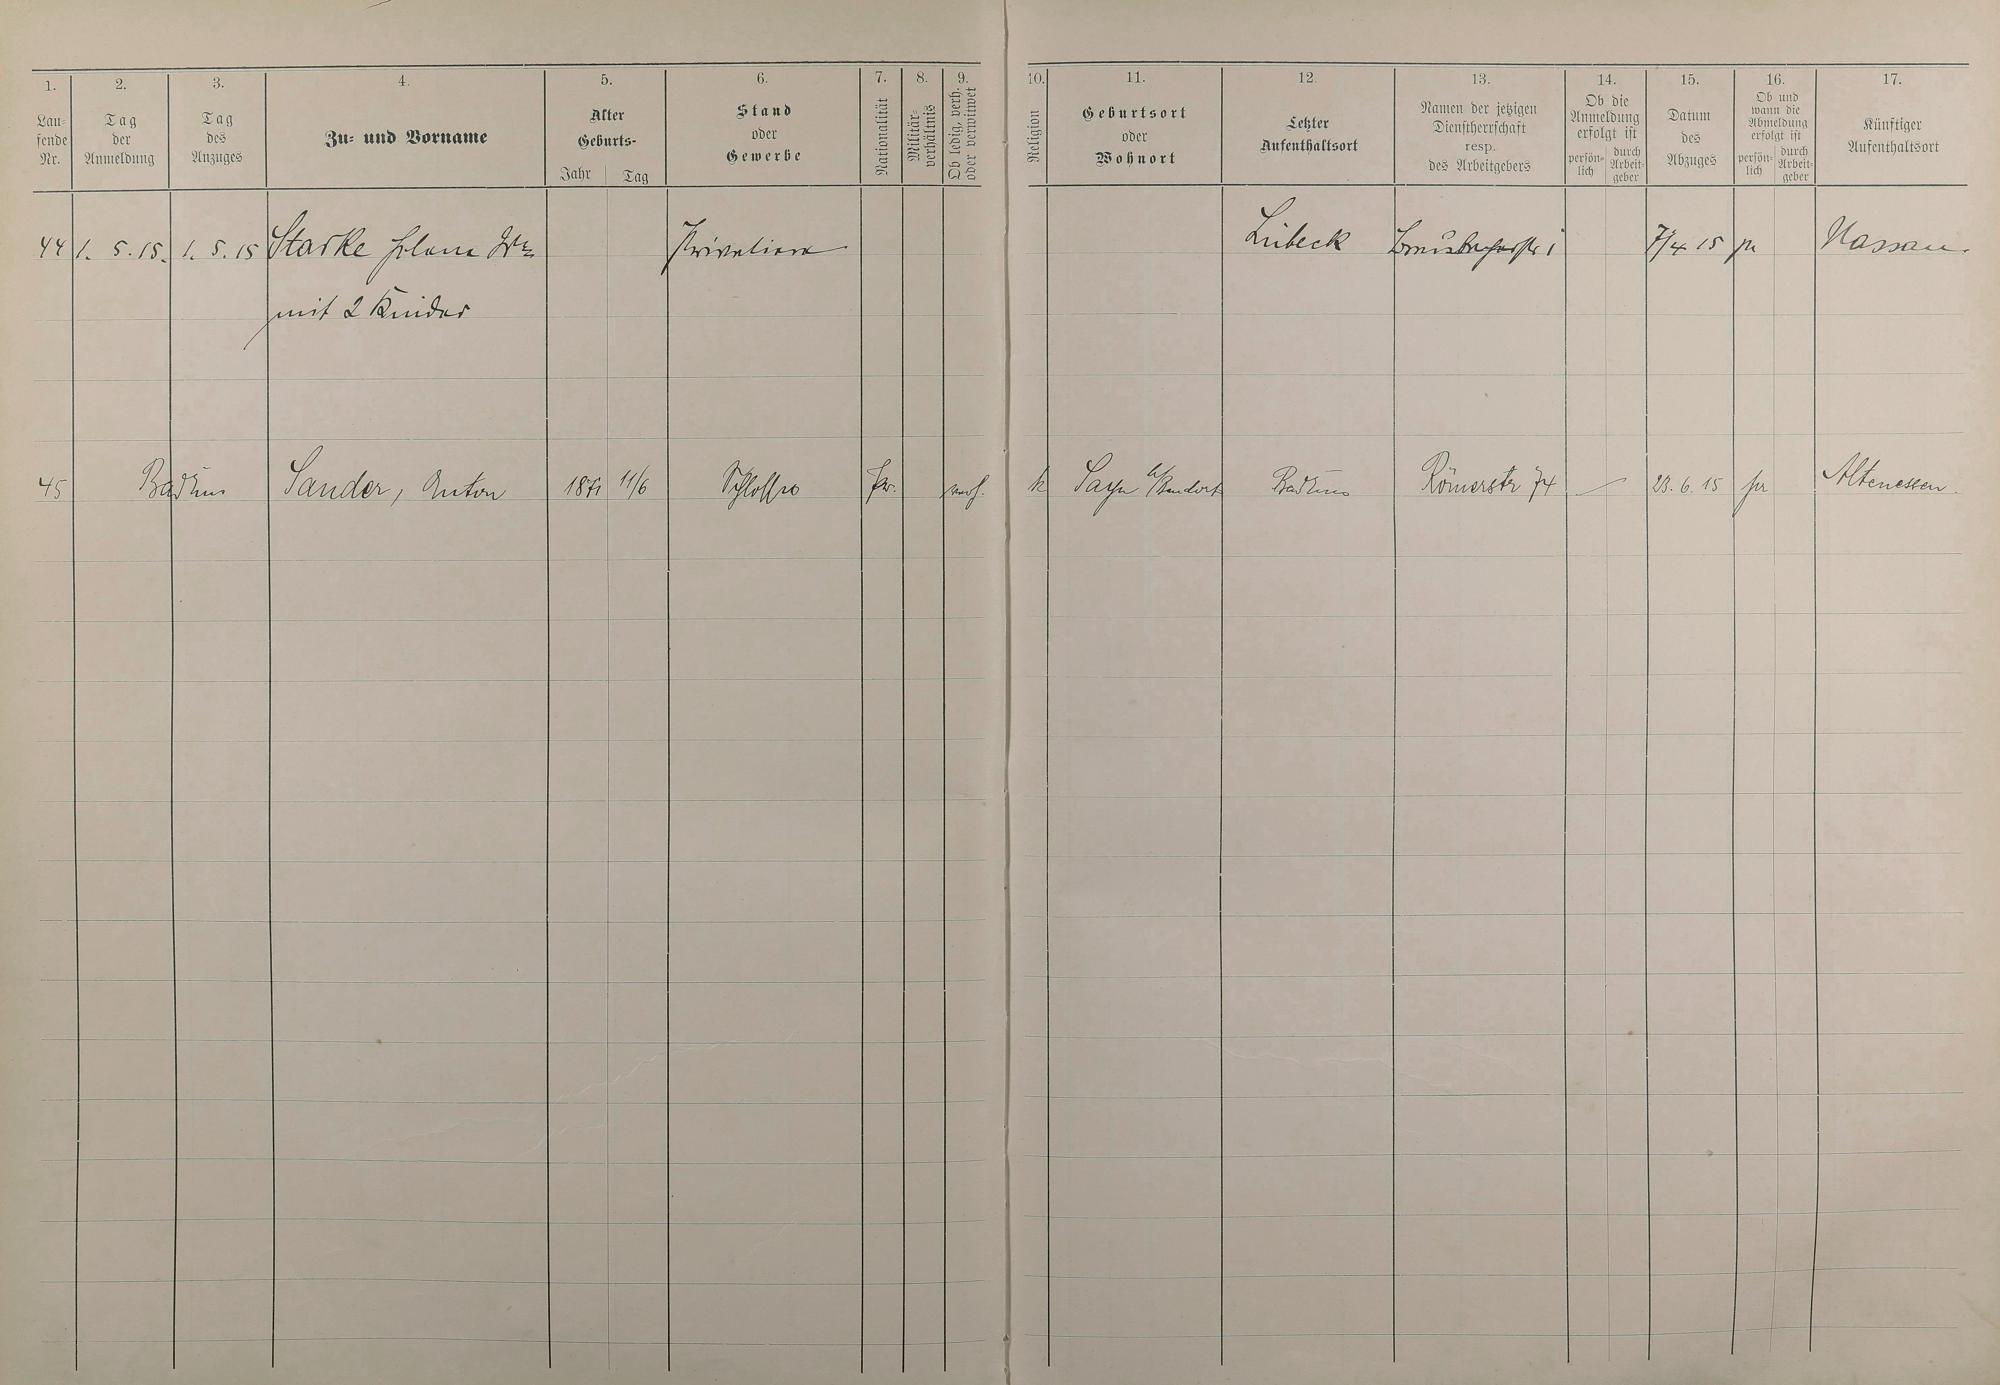 1. 2. 3. 4. 5. 6. 7. 8. 9. 10. 11. 12. 13. 14. 15. 16. 17.
Lau=
fende
Nr.
Tag
der
Anmeldung
Tag
des
Anzuges
Zu= und Vorname
Alter
Geburts-
Jahr
Tag
Stand
oder
Gewerbe
Nationalität
Militär-
verhältnis
Ob ledig, verh.
oder verwitwet
Religion
Geburtsort
oder
Wohnort
Letzter
Aufenthaltsort
Namen der jetzigen
Dienstherrschaft
resp.
des Arbeitgebers
Ob die
Anmeldung
erfolgt ist
persön=
lich
durch
Arbeit=
geber
Datum
des
Abzuges
Ob und
wann die
Abmeldung
erfolgt ist
persön=
lich
durch
Arbeit=
geber
Künftiger
Aufenthaltsort
44 1. 5. 15. 1. 5. 15 Starke Lübeck 7/4 15 Nassau.
mit 2 Kinder
45 Bad Ems Sander, Anton 1871 11/6 Schlosser Pr. verh. k Sayn b/Bendorf Bad Ems Römerstr 74 23. 6. 15 Altenessen.